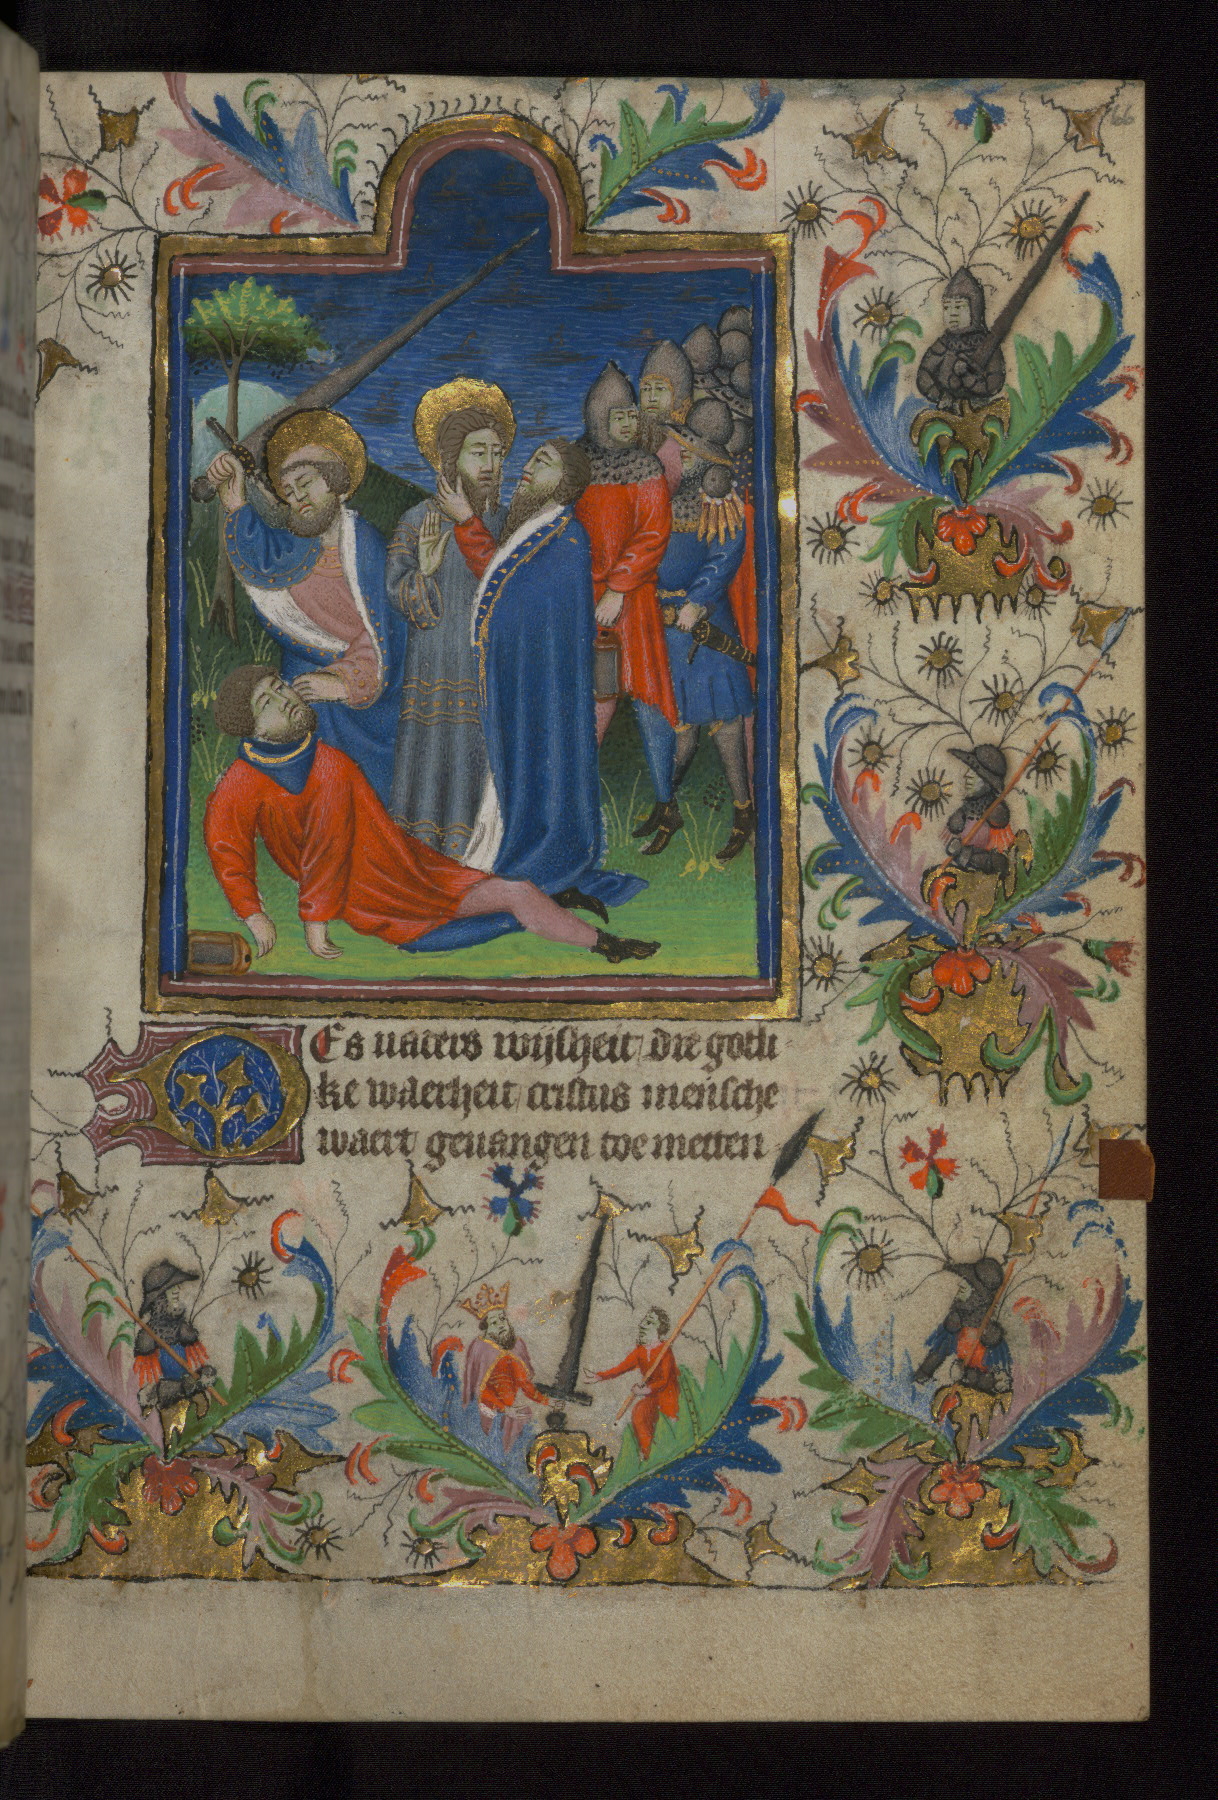 66
Des vaders wijsheit / die gotli
ke waerheit / cristus mensche
waert gevangen toe metten